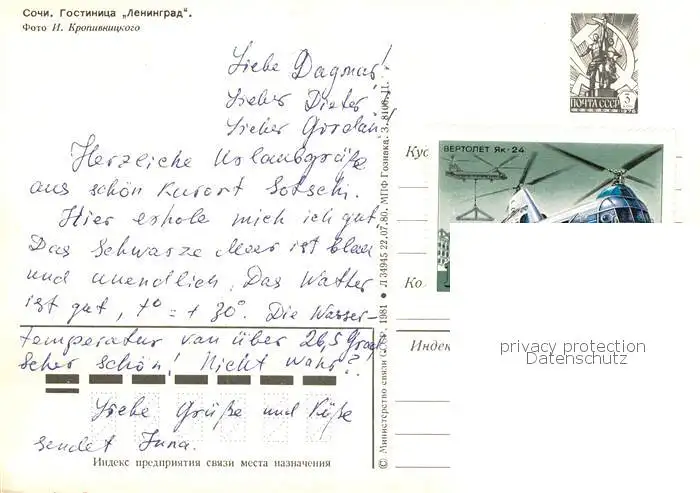 Сочи. Гостиница „Ленинград".
Фото И. Кропивницкого
Liebe Dagmar!
Lieber Dieter!
Lieber Giordan!
Herzliche Urlaubsgrüße
aus schön Kurort Sotschi.
Hier erhole mich ich gut,
Das Schwarze Meer ist blau
und unendlich. Das Watter
ist gut, t° = + 30°. Die Wasser-
temperatur van über 26,5 Grad
Seher schön! Nicht wahr?
Liebe Grüße und Küße
sendet Inna.
Индекс предприятия связи места назначения
© Министерство связи СССР, 1981 ● Л 34945 22.07.80. МПФ Гознака. З. 8106. Ц.
ПОЧТА СССР 3
1976
ВЕРТОЛЕТ Як-24
Кус
Ко
Индек
privacy protection
Datenschutz